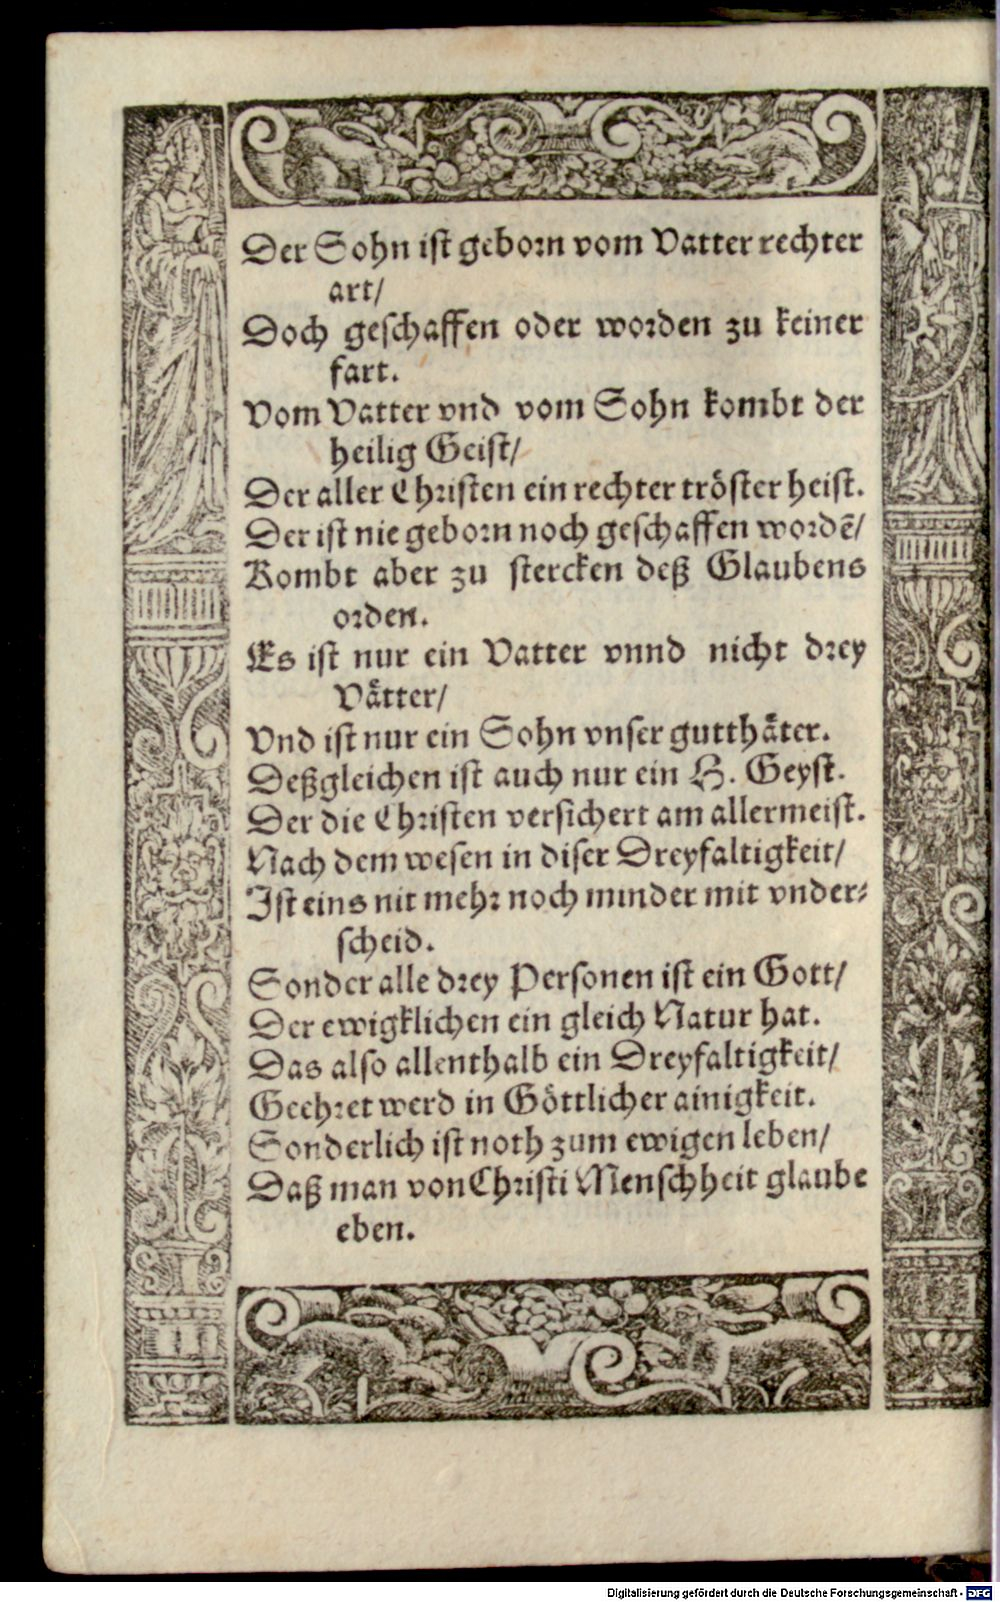 Der Sohn ist geborn vom Vatter rechter
art/
Doch geschaffen oder worden zu keiner
fart.
Vom Vatter vnd vom Sohn kombt der
heilig Geist/
Der aller Christen ein rechter tröster heist.
Der ist nie geborn noch geschaffen wordē/
Kombt aber zu stercken deß Glaubens
orden.
Es ist nur ein Vatter vnnd nicht drey
Vätter/
Vnd ist nur ein Sohn vnser gutthäter.
Deßgleichen ist auch nur ein H. Geyst.
Der die Christen versichert am allermeist.
Nach dem wesen in diser Dreyfaltigkeit/
Ist eins nit mehr noch minder mit vnder⸗
scheid.
Sonder alle drey Personen ist ein Gott/
Der ewigklichen ein gleich Natur hat.
Das also allenthalb ein Dreyfaltigkeit/
Geehret werd in Göttlicher ainigkeit.
Sonderlich ist noth zum ewigen leben/
Daß man von Christi Menschheit glaube
eben.
Digitalisierung gefördert durch die Deutsche Forschungsgemeinschaft - DFG